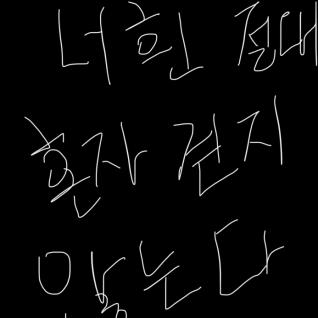 너흰 절대
혼자 걷지
않는다